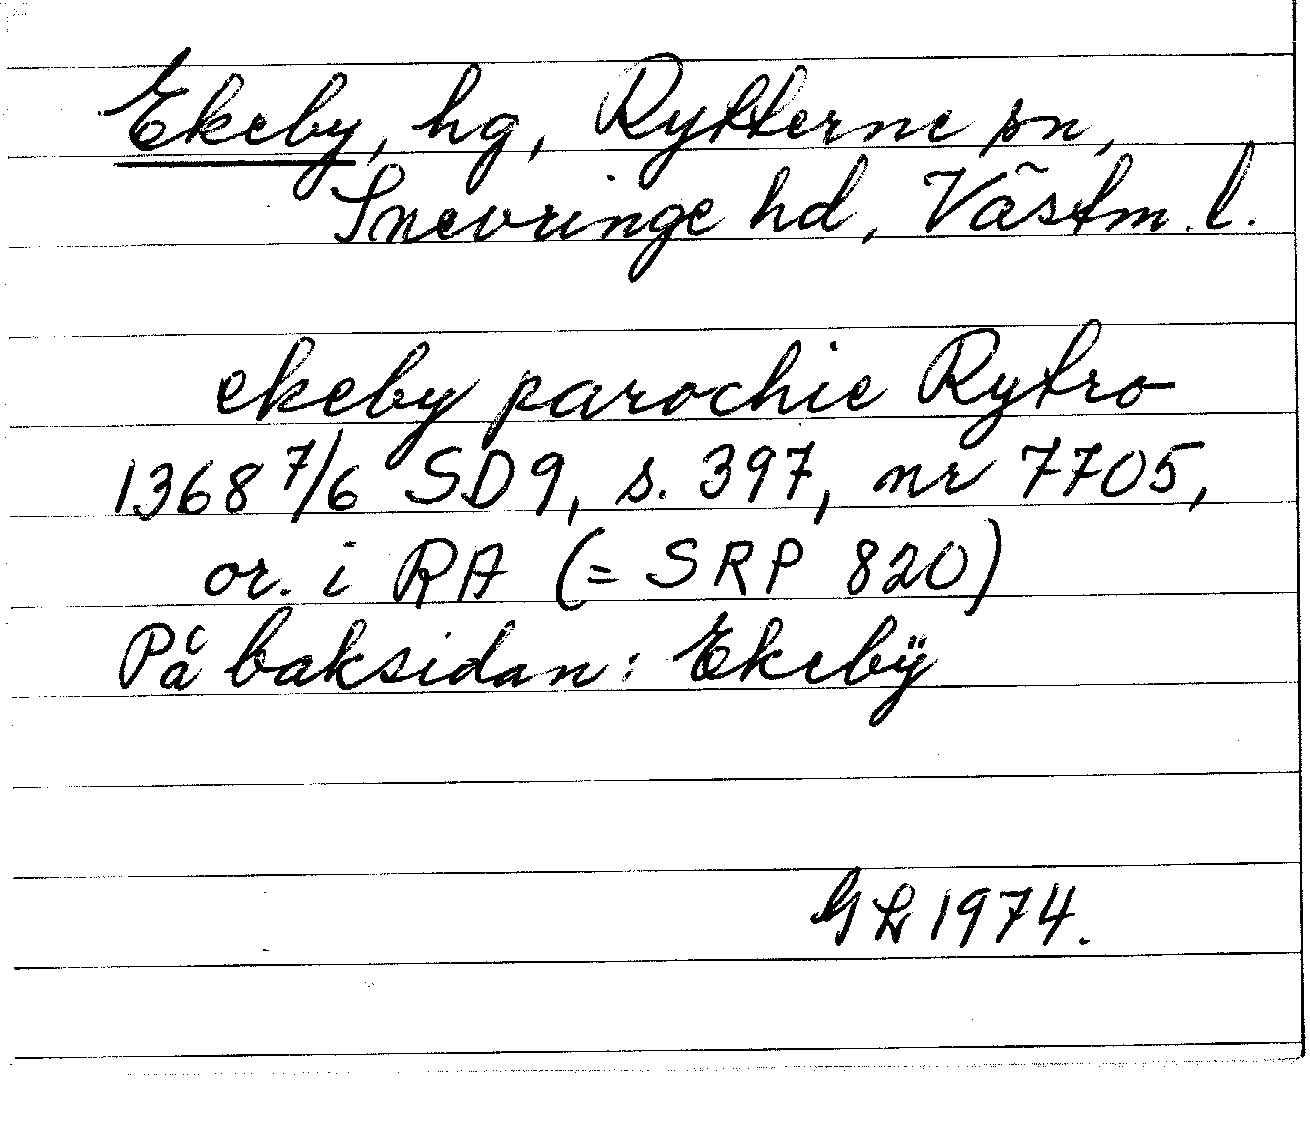 Ekeby, hg, Rytterne sn,
Snevringe hd, Västm. l.
ekeby parochie Rytro
1368 7/6 SD9, s. 397, nr 7705,
or. i RA (= SRP 820)
På baksidan: Ekebÿ
GL 1974.